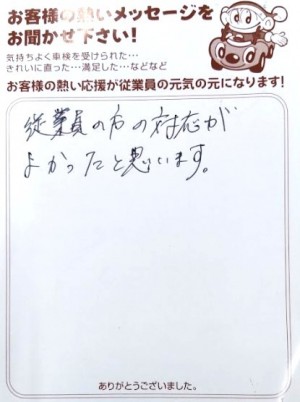 お客様の熱いメッセージを
お聞かせ下さい！
気持ちよく車検を受けられた…
きれいに直った…満足した…などなど
お客様の熱い応援が従業員の元気の元になります！
従業員の方の対応が
よかったと思います。
ありがとうございました。